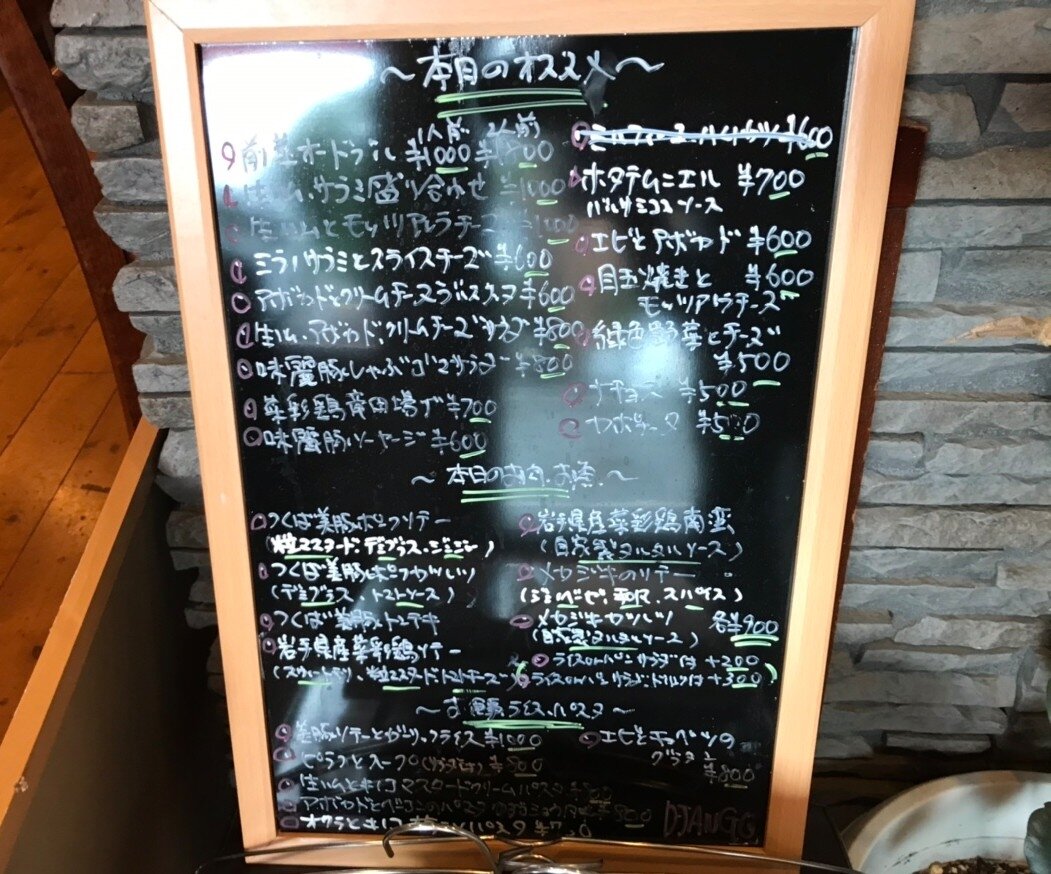 ～本日のオススメ～
1人前 2人前
前菜オードブル ¥1000 ¥1800
生ハム、サラミ盛り合わせ ¥1000
生ハムとモッツアレラチーズ ¥1000
ミラノサラミとスライスチーズ ¥600
アボカドとクリームチーズ ¥600
生ハム、アボカド、クリームチーズサラダ ¥800
味麗豚しゃぶゴマサラダ ¥800
菜彩鶏竜田揚げ ¥700
味麗豚ソーセージ ¥600
¥600
ホタテムニエル ¥700
バルサミコソース
エビとアボカド ¥600
目玉焼きと ¥600
モッツアレラチーズ
緑色野菜とチーズ
¥500
ナチョス ¥500
¥500
～本日のお肉、お魚～
つくば美豚ポークソテー
(粒マスタード、デミグラス、ジンジャー)
つくば美豚ポークカツレツ
(デミグラス トマトソース)
つくば美豚トンテキ
岩手県産菜彩鶏ソテー
(粒マスタード、トマトチーズ)
岩手県産菜彩鶏南蛮
(自家製タルタルソース)
メカジキのソテー
(ジェノベーゼ、和風、スパイス)
メカジキカツレツ 各¥900
(自家製タルタルソース)
ライスorパン サラダは +200
ライスorパン サラダ、ドリンクは +300
～お食事ライス、パスタ～
美豚ソテーとガーリックライス ¥1000
ピラフとスープ(サラダ付) ¥800
生ハムとキノコマスタードクリームパスタ ¥800
アボカドとベーコンのパスタ ¥800
オクラとキノコ パスタ
エビとキャベツの
グラタン
¥800
DJANGO